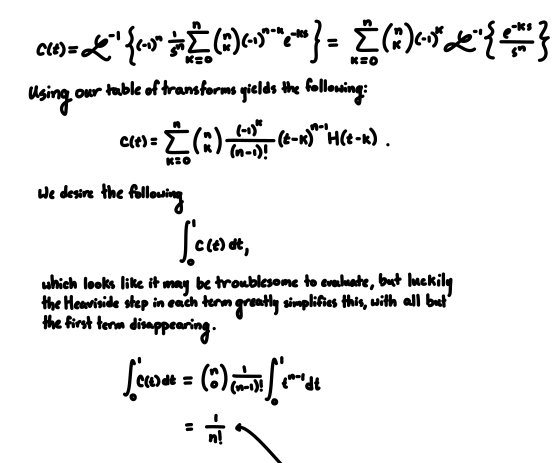 C(t) = ℒ⁻¹{(-1)ⁿ 1/sⁿ ∑_{k=0}^{n} (n k) (-1)^{n-k} e^{-ks}} = ∑_{k=0}^{n} (n k) (-1)^k ℒ⁻¹{e^{-ks}/sⁿ}
Using our table of transforms yields the following:
C(t) = ∑_{k=0}^{n} (n k) (-1)^k/(n-1)! (t-k)^{n-1} H(t-k) .
We desire the following
∫₀¹ C(t) dt,
which looks like it may be troublesome to evaluate, but luckily
the Heaviside step in each term greatly simplifies this, with all but
the first term disappearing.
∫₀¹ C(t) dt = (n 0) 1/(n-1)! ∫₀¹ t^{n-1} dt
= 1/n!